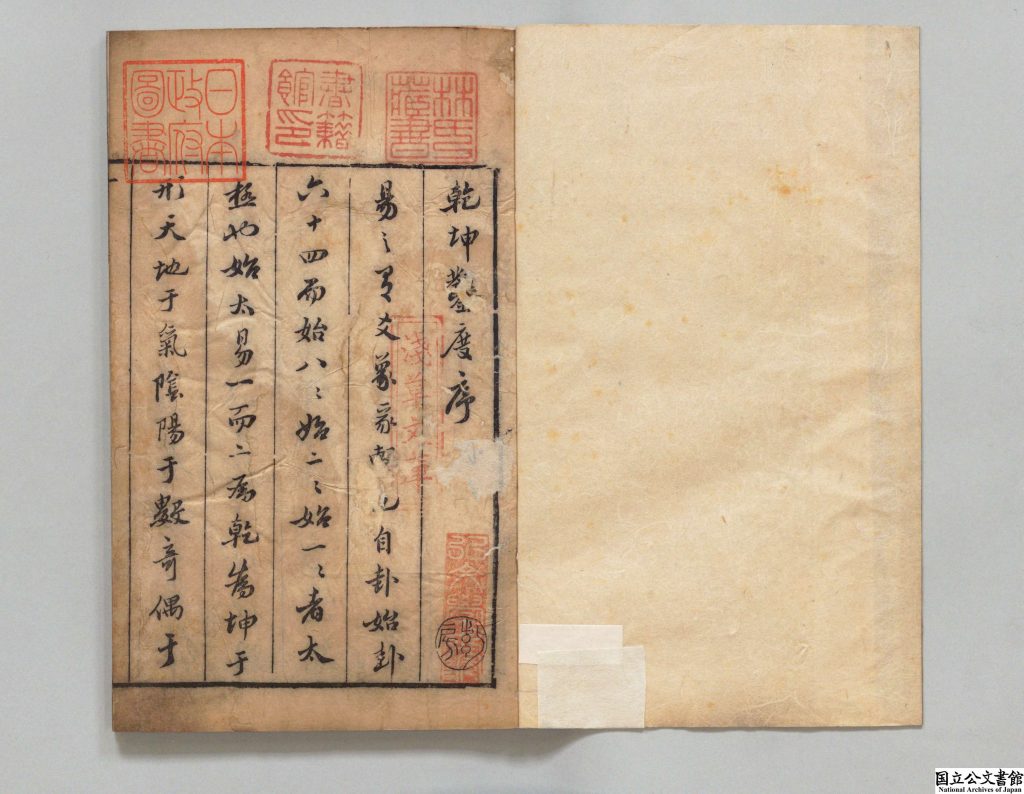 林氏
藏書
書籍
館印
日本
政府
圖書
乾坤鑿度序
易之有爻象彖也自卦始卦
六十四而始八〻始二〻始一〻者太
極也始太易一而二為乾為坤于
形天地于氣陰陽于數奇偶于
淺草文庫
国立公文書館
National Archives of Japan